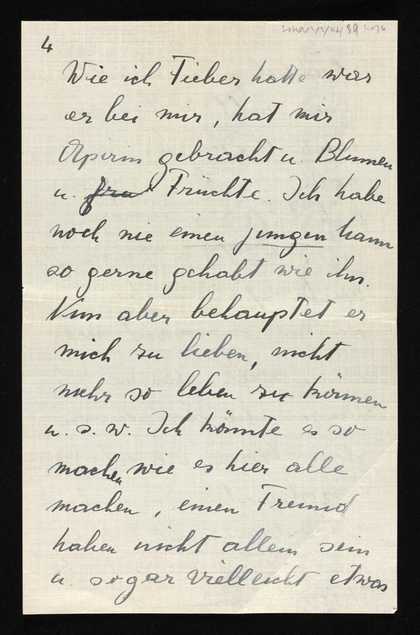 4
Wie ich Fieber hatte war
er bei mir, hat mir
Aspirin gebracht u. Blumen
u. Früchte. Ich habe
noch nie einen jungen Mann
so gerne gehabt wie ihn.
Nun aber behauptet er
mich zu lieben, nicht
mehr so leben zu können
u. s. w. Ich könnte es so
machen wie es hier alle
machen, einen Freund
haben nicht allein sein
u. sogar vielleicht etwas